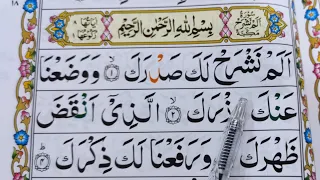 بِسْمِ اللهِ الرَّحْمٰنِ الرَّحِيْمِ
اَلَمْ نَشْرَحْ لَكَ صَدْرَكَ ۙ﴿۱﴾ وَوَضَعْنَا
عَنْكَ وِزْرَكَ ۙ﴿۲﴾ الَّذِيْۤ اَنْقَضَ
ظَهْرَكَ ۙ﴿۳﴾ وَرَفَعْنَا لَكَ ذِكْرَكَ